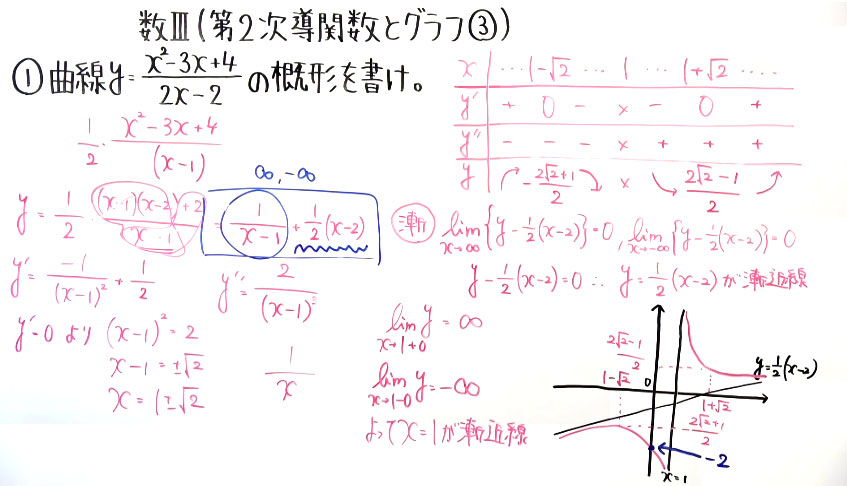 数Ⅲ(第2次導関数とグラフ③)
①曲線y=\frac{x²-3x+4}{2x-2}の概形を書け。
\frac{1}{2}・\frac{x²-3x+4}{(x-1)}
∞,-∞
y=\frac{1}{2}・\frac{(x-1)(x-2)+2}{x-1}=\frac{1}{x-1}+\frac{1}{2}(x-2)
y'=\frac{-1}{(x-1)²}+\frac{1}{2}
y''=\frac{2}{(x-1)³}
y'=0より (x-1)²=2
x-1=±√2
x=1±√2
\frac{1}{x}
x … 1-√2 … 1 … 1+√2 ‥‥
y' + 0 - × - 0 +
y'' - - - × + + +
y -\frac{2√2+1}{2} × \frac{2√2-1}{2}
漸 lim_{x→∞}{y-\frac{1}{2}(x-2)}=0, lim_{x→-∞}{y-\frac{1}{2}(x-2)}=0
y-\frac{1}{2}(x-2)=0 ∴ y=\frac{1}{2}(x-2)が漸近線
lim_{x→1+0} y=∞
lim_{x→1-0} y=-∞
よってx=1が漸近線
\frac{2√2-1}{2}
1-√2
0
y=\frac{1}{2}(x-2)
1+√2
-\frac{2√2+1}{2}
-2
x=1